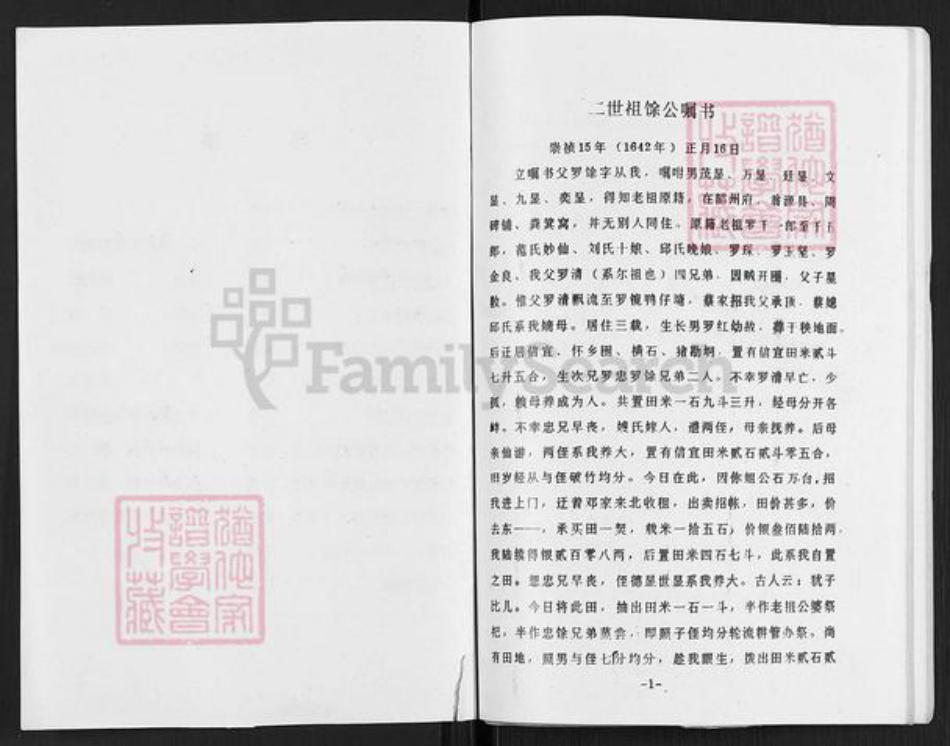 二世祖馀公嘱书
崇祯15年（1642年）正月16日
立嘱书父罗馀字从我，嘱咐男茂显、万显、廷显、文
显、九显、奕显，得知老祖原籍，在韶州府、翁源县、周
碑铺、粪箕窝，并无别人同住。原籍老祖罗千一郎至千五
郎，范氏妙仙、刘氏十娘、邱氏晚娘、罗琛、罗玉坚、罗
金良、我父罗清（系尔祖也）四兄弟，因贼开圈，父子星
散。惟父罗清飘流至罗镜鸭仔塘，蔡家招我父承顶，蔡媳
邱氏系我嫡母。居住三载，生长男罗红幼故，葬于秧地面。
后迁居信宜、怀乡圈、横石、猪勘垌，置有信宜田米贰斗
七升五合，生次兄罗忠罗馀兄弟二人。不幸罗清早亡，少
孤，赖母养成为人。共置田米一石九斗三升，经母分开各
爨。不幸忠兄早丧，嫂氏嫁人，遗两侄，母亲抚养。后母
亲仙游，两侄系我养大，置有信宜田米贰石贰斗零五合，
旧岁经从与侄破竹均分。今日在此，因你姐公石万台，招
我进上门，迁着邓家来北收租，出卖招帐，田价甚多，价
去东一一，承买田一契，载米一拾五石，价银叁佰陆拾两，
我陆续得银贰百零八两，后置田米四石七斗，此系我自置
之田。想忠兄早丧，侄德显世显系我养大。古人云：犹子
比儿。今日将此田，抽出田米一石一斗，半作老祖公婆祭
祀，半作忠馀兄弟蒸尝，即照子侄均分轮流耕管办祭。尚
有田地，照男与侄七份均分，趁我眼生，拨出田米贰石贰
-1-
猶他家
譜學會
收藏
猶他家
譜學會
收藏
FamilySearch